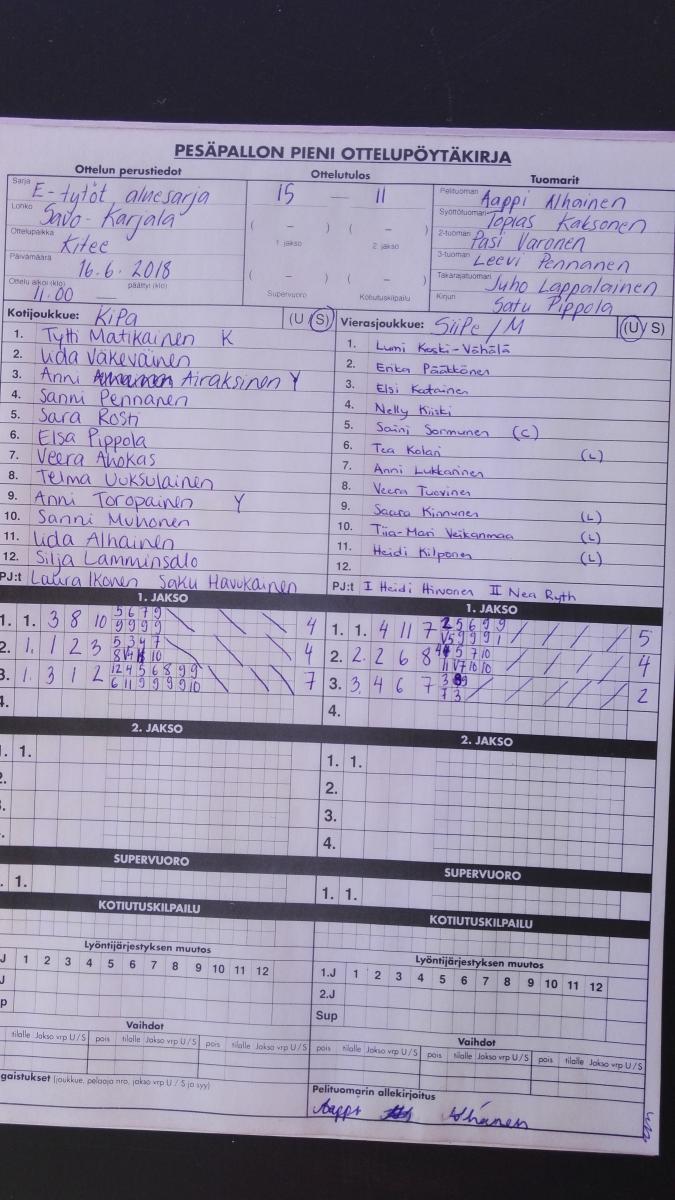 PESÄPALLON PIENI OTTELUPÖYTÄKIRJA
Ottelun perustiedot
Ottelutulos
Tuomarit
Sarja E-tytöt aluesarja
Lohko Savo-Karjala
Ottelupaikka Kitee
Päivämäärä 16.6.2018
Ottelu alkoi (klo) päättyi (klo)
11.00 —
15 — 11
( – ) ( – )
1. jakso 2. jakso
( – ) ( – )
Supervuoro Kotiutuskilpailu
Pelituomari Aappi Alhainen
Syöttötuomari Topias Kaksonen
2-tuomari Pasi Varonen
3-tuomari Leevi Pennanen
Takarajatuomari Juho Lappalainen
Kirjuri Satu Pippola
Kotijoukkue: KiPa (U/S)
1. Tytti Matikainen K
2. Iida Väkeväinen
3. Anni Airaksinen Y
4. Sanni Pennanen
5. Sara Rosti
6. Elsa Pippola
7. Veera Ahokas
8. Telma Uuksulainen
9. Anni Toropainen Y
10. Sanni Muhonen
11. Iida Alhainen
12. Silja Lamminsalo
PJ:t Laura Ikonen Saku Havukainen
Vierasjoukkue: SiiPe/M (U/S)
1. Lumi Koski-Vähälä
2. Erika Pääkkönen
3. Elsi Katainen
4. Nelly Kiiski
5. Saini Sormunen (C)
6. Tea Kolari (L)
7. Anni Lukkarinen
8. Veera Tuovinen
9. Saara Kinnunen (L)
10. Tiia-Mari Veikanmaa (L)
11. Heidi Kilponen (L)
12.
PJ:t I Heidi Hirvonen II Nea Ryth
1. JAKSO
1. 1. 3 8 10 5 6 7 9 4
9 9 9 9
2. 1. 1 2 3 5 3 4 7 4
3. 1. 3 1 2 12 4 5 6 8 9 9 7
6 11 9 9 9 9 10
4.
1. JAKSO
1. 1. 4 11 7 2 5 6 9 9 5
2. 2. 2 6 8 4
3. 3. 4 6 7 2
7 3
4.
2. JAKSO
1. 1.
2.
3.
4.
2. JAKSO
1. 1.
2.
3.
4.
SUPERVUORO
1. 1.
SUPERVUORO
1. 1.
KOTIUTUSKILPAILU
KOTIUTUSKILPAILU
Lyöntijärjestyksen muutos
J 1 2 3 4 5 6 7 8 9 10 11 12
J
p
Lyöntijärjestyksen muutos
1.J 1 2 3 4 5 6 7 8 9 10 11 12
2.J
Sup
Vaihdot
tilalle Jakso vrp U/S pois tilalle Jakso vrp U/S pois tilalle Jakso vrp U/S
Vaihdot
pois tilalle Jakso vrp U/S pois tilalle Jakso vrp U/S pois tilalle Jakso vrp U/S
gaistukset (joukkue, pelaaja nro, jakso vrp U / S ja syy)
Pelituomarin allekirjoitus
Aappi Alhainen